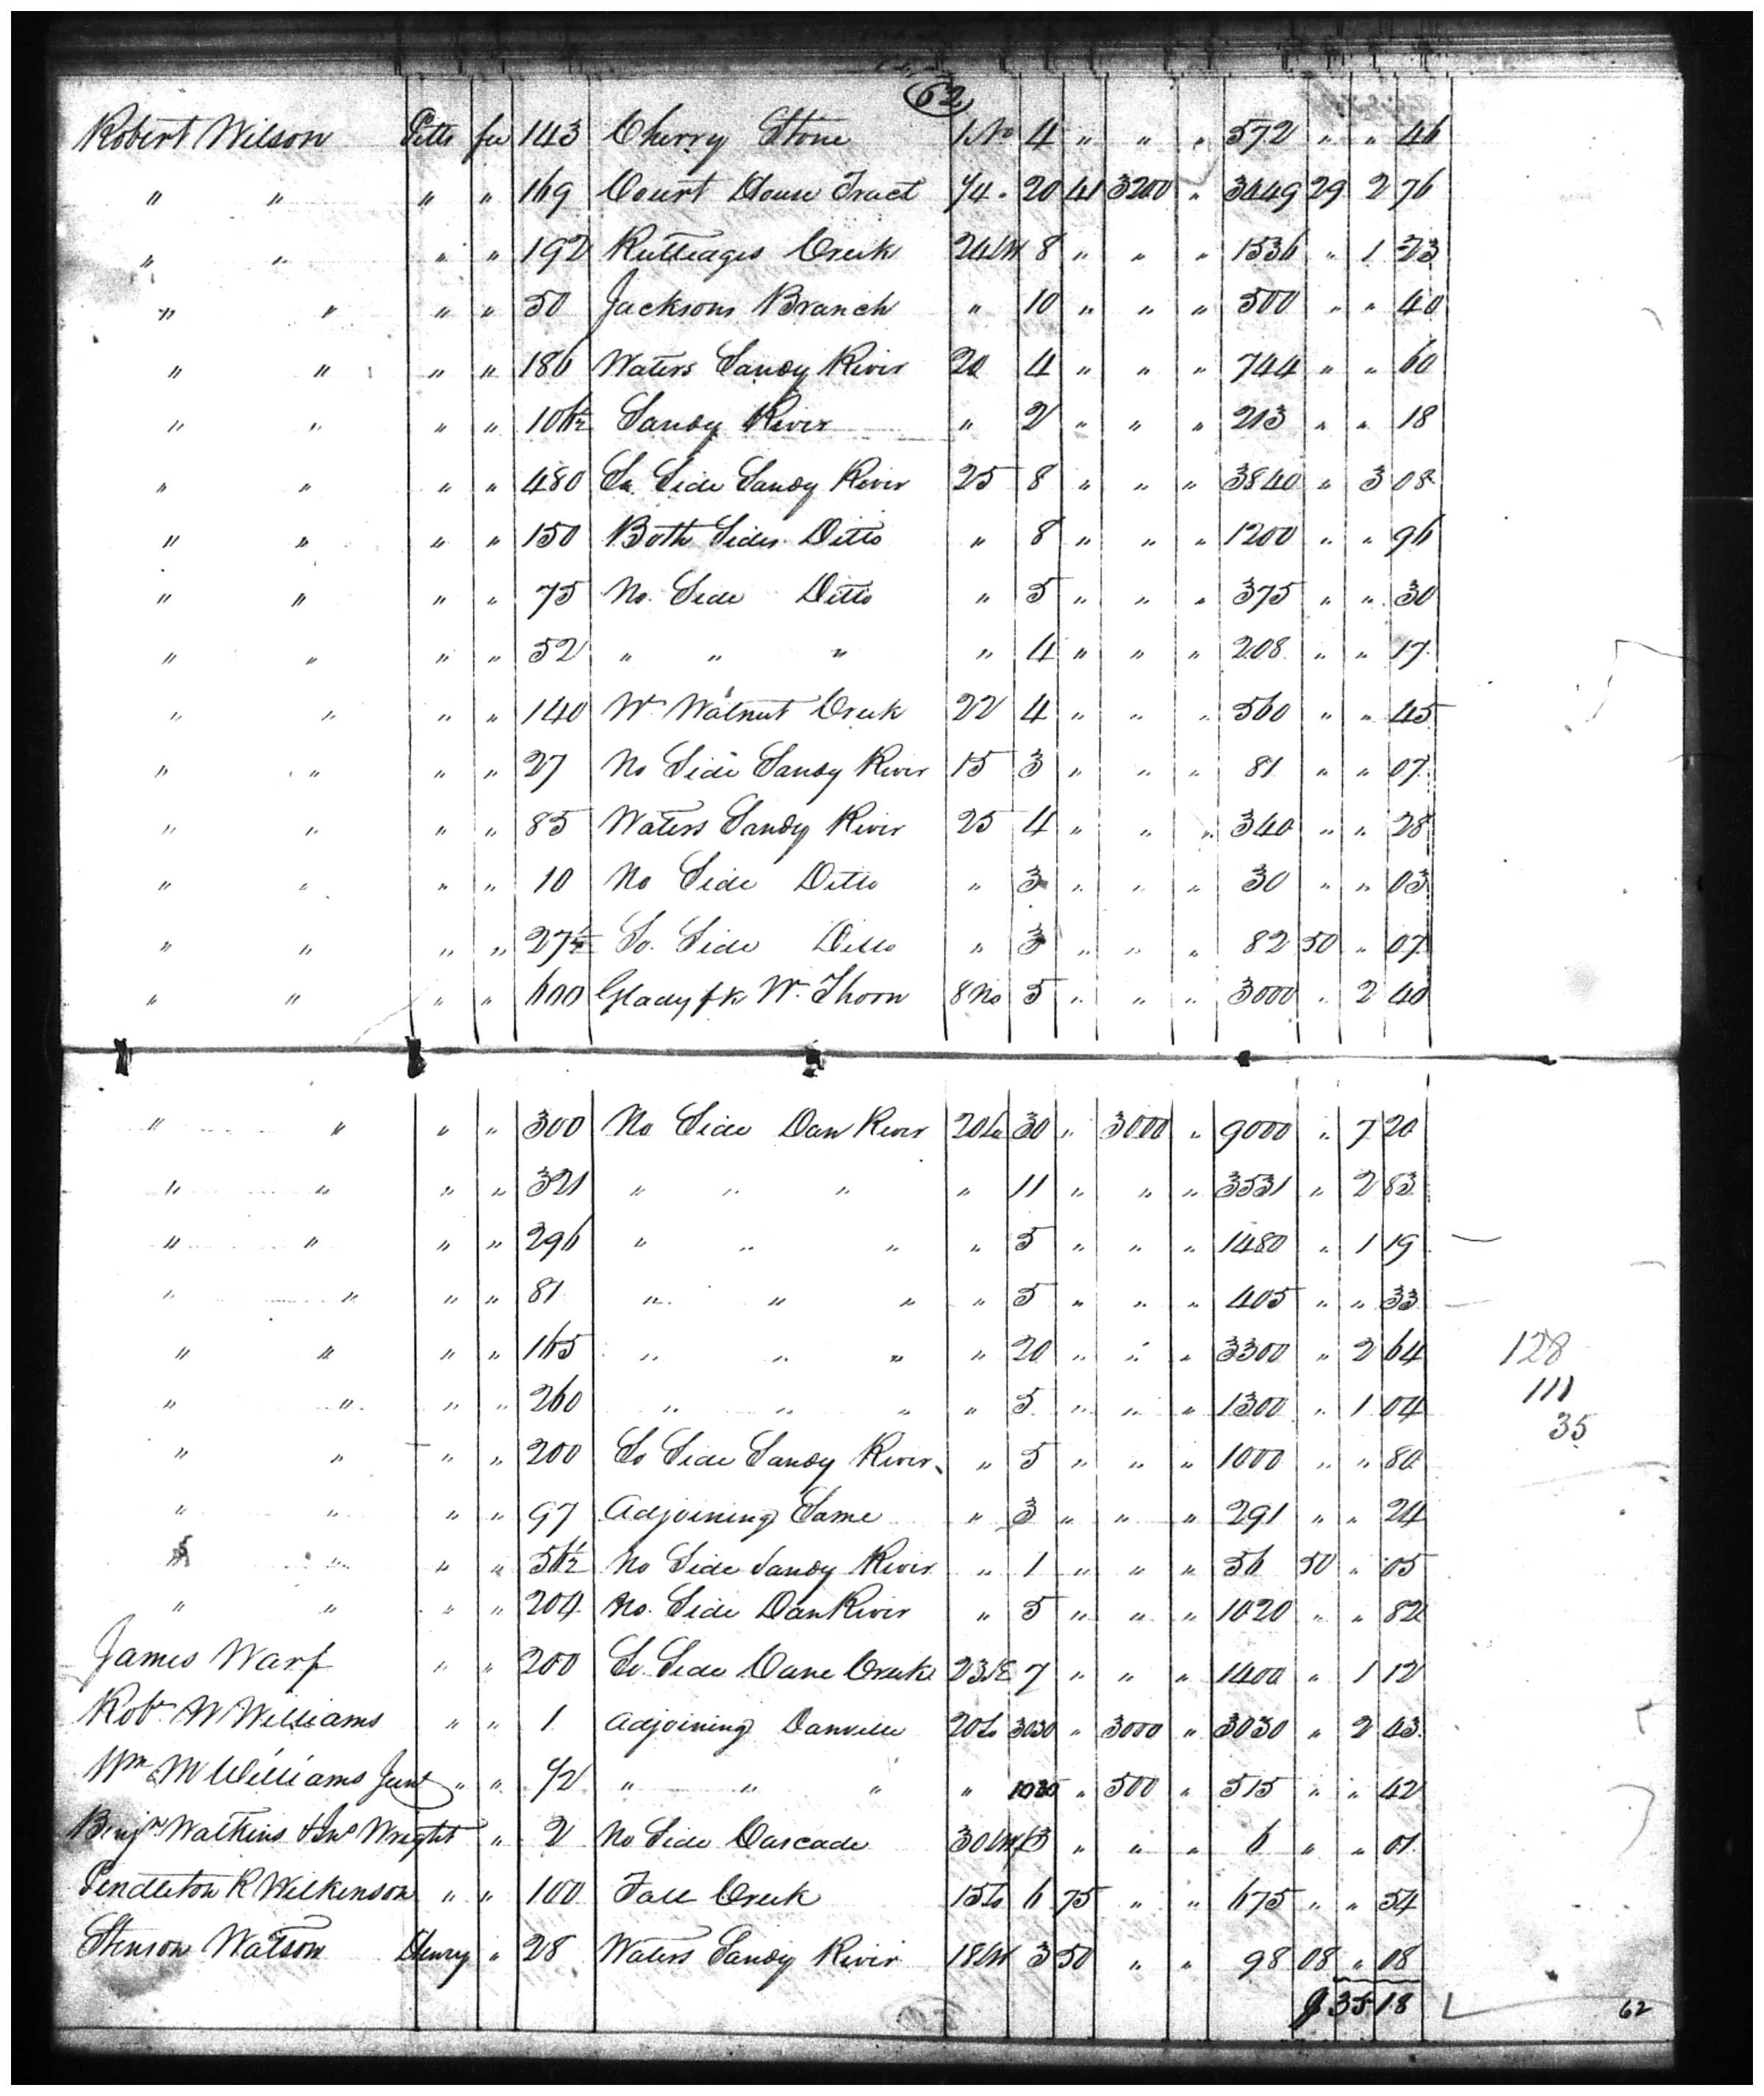 62
Robert Wilson Pitts fee 143 Cherry Stone 1 No 4 " " " 572 " " 46
" " " " 169 Court House Tract 1/4 " 20 41 3200 " 3449 29 2 76
" " " " 192 Rutleages Creek 24 W 8 " " " 1536 " 1 23
" " " " 50 Jacksons Branch " 10 " " " 500 " " 40
" " " " 186 Waters Sandy River 20 4 " " " 744 " " 60
" " " " 106½ Sandy River " 2 " " " 213 " " 18
" " " " 480 So. Side Sandy River 25 8 " " " 3840 " 3 08
" " " " 150 Both Sides Ditto " 8 " " " 1200 " " 96
" " " " 75 No. Side Ditto " 5 " " " 375 " " 30
" " " " 52 " " " " 4 " " " 208 " " 17
" " " " 140 Wt Walnut Creek 22 4 " " " 560 " " 45
" " " " 27 No Side Sandy River 15 3 " " " 81 " " 07
" " " " 85 Waters Sandy River 25 4 " " " 340 " " 28
" " " " 10 No Side Ditto " 3 " " " 30 " " 03
" " " " 27½ So. Side Ditto " 3 " " " 82 50 " 07
" " " " 600 Glady fk W. Thorn 8 No 5 " " " 3000 " 2 40
" " " " 300 No Side Dan River 20 So 30 " 3000 " 9000 " 7 20
" " " " 321 " " " " 11 " " " 3531 " 2 83
" " " " 296 " " " " 5 " " " 1480 " 1 19
" " " " 81 " " " " 5 " " " 405 " " 33
" " " " 165 " " " " 20 " " " 3300 " 2 64 128
" " " " 260 " " " " 5 " " " 1300 " 1 04 111
35
" " " " 200 So Side Sandy River " 5 " " " 1000 " " 80
" " " " 97 Adjoining Same " 3 " " " 291 " " 24
" " " " 56½ No Side Sandy River " 1 " " " 56 50 " 05
" " " " 204 No. Side Dan River " 5 " " " 1020 " " 82
James Warf " " 200 So. Side Cane Creek 23 SE 7 " " " 1400 " 1 12
Robt. W Williams " " 1 Adjoining Danville 20 So 3030 " 3000 " 3030 " 2 43
Wm M Williams Junr " " 1/2 " " " " 1030 " 500 " 515 " " 42
Benjn Watkins & Jno Wright " 2 No Side Cascade 30 W 3 " " " 6 " " 01
Pendleton R Wilkinson " " 100 Fall Creek 15 So 6 75 " " 675 " " 54
Stenson Watson Henry " 28 Waters Sandy River 18 W 3 50 " " 98 08 " 08
$ 35 18
62